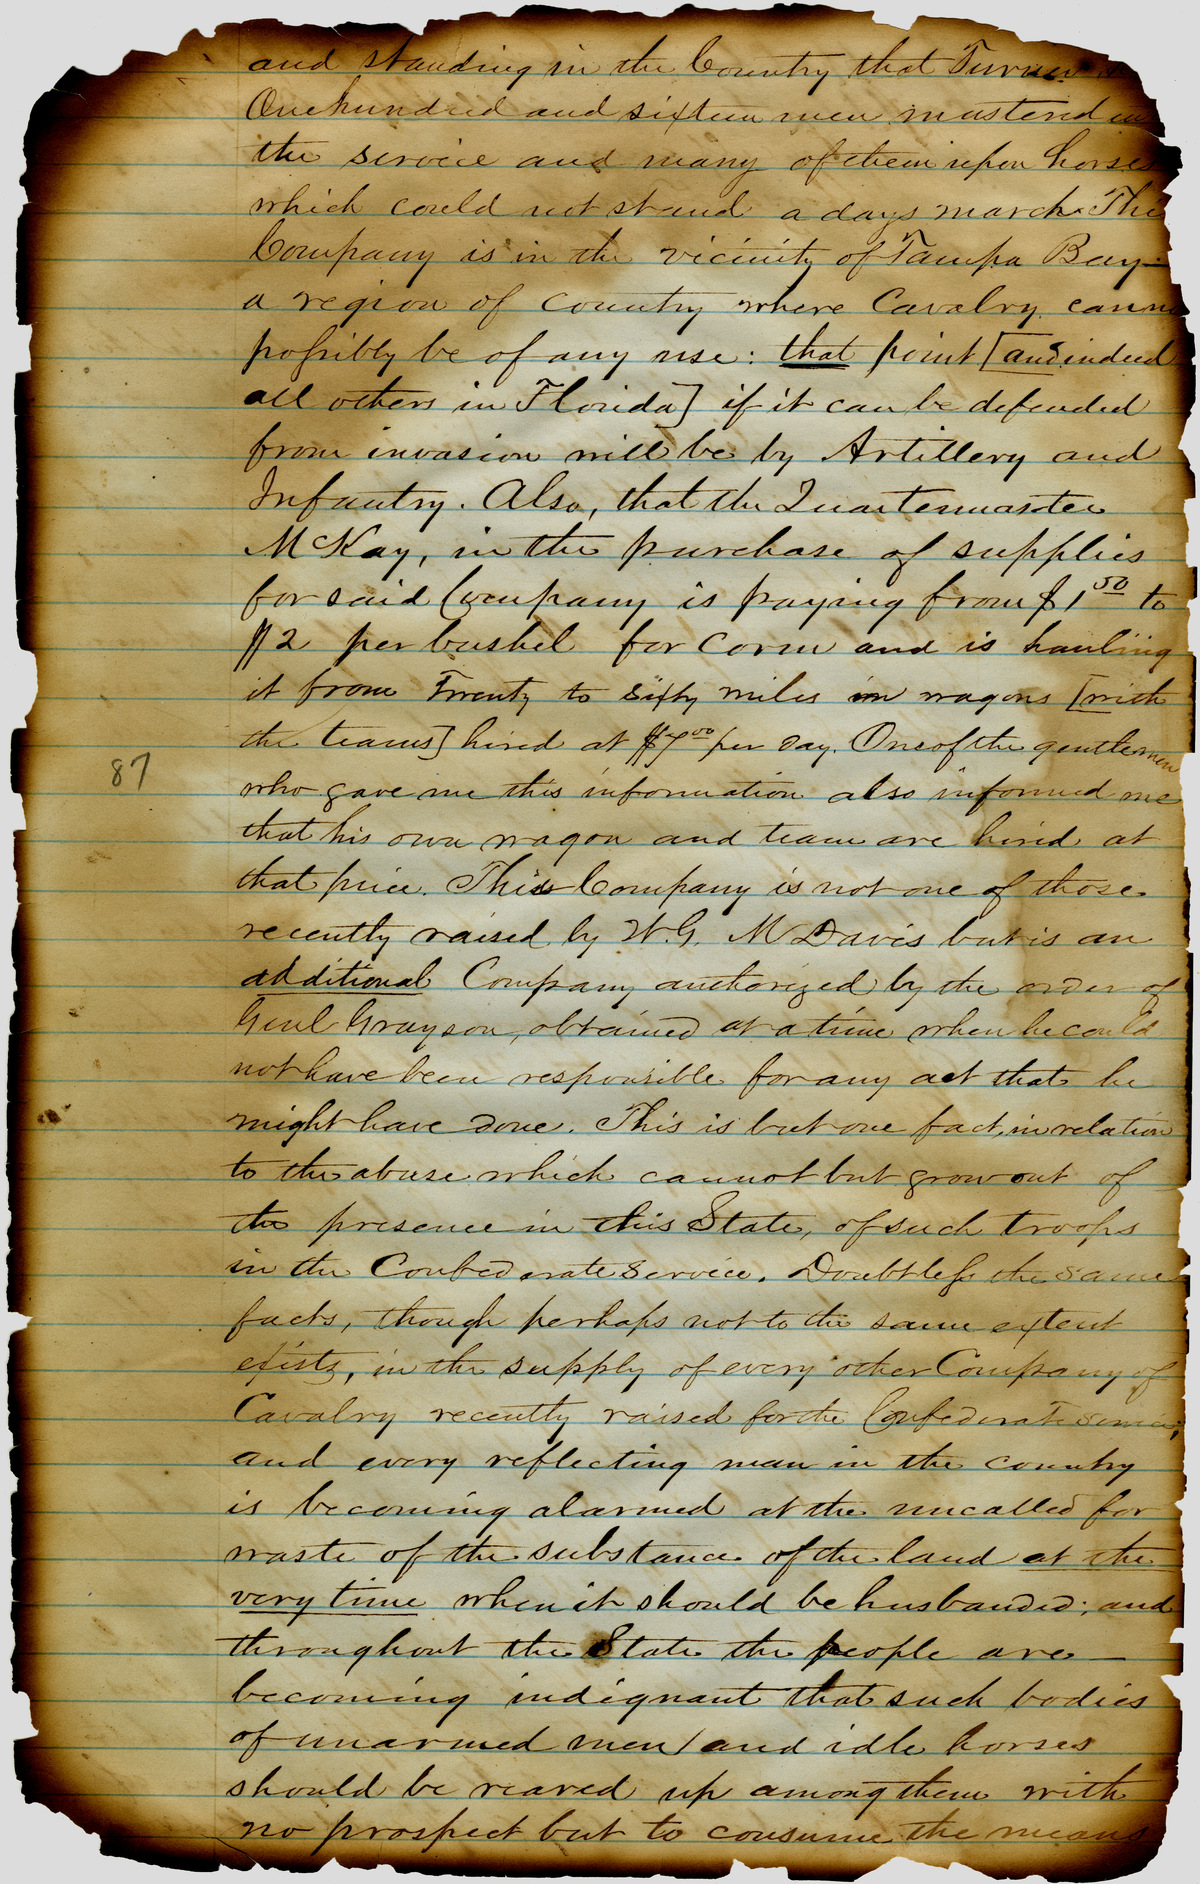 and standing in the Country that Turner
One hundred and sixteen men mustered in
the service and many of them upon horses
which could not stand a days march. This
Company is in the vicinity of Tampa Bay—
a region of country where Cavalry can
possibly be of any use: that point [and indeed
all others in Florida] if it can be defended
from invasion will be by Artillery and
Infantry. Also, that the Quartermaster
McKay, in the purchase of supplies
for said Company is paying from $1.50 to
$2 per bushel for corn and is hauling
it from Twenty to sixty miles in wagons [with
the teams] hired at $7.00 per day. One of the gentlemen
87
who gave me this information also informed me
that his own wagon and team are hired at
that price. This Company is not one of those
recently raised by W.G. M Davis but is an
additional Company authorized by the order of
Genl Grayson, obtained at a time when he could
not have been responsible for any act that he
might have done. This is but one fact, in relation
to the abuse which cannot but grow out of
the presence in this State, of such troops
in the Confederate service. Doubtless the same
facts, though perhaps not to the same extent
exists, in the supply of every other Company of
Cavalry recently raised for the Confederate service;
and every reflecting man in the country
is becoming alarmed at the uncalled for
waste of the substance of the land at the
very time when it should be husbanded; and
throughout the State the people are —
becoming indignant that such bodies
of unarmed men and idle horses
should be reared up among them with
no prospect but to consume the means